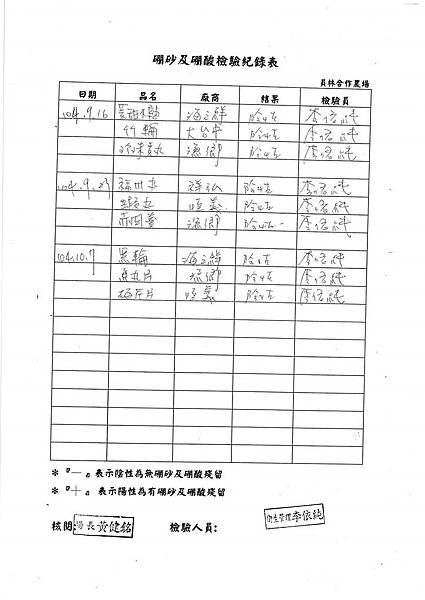 硼砂及硼酸檢驗紀錄表
員林合作農場
日期 品名 廠商 結果 檢驗員
104.9.16 黑甜不辣 海之鮮 陰性 李依純
竹輪 大台中 陰性 李依純
陰性 李依純
104.9.23 福州丸 祥弘 陰性 李依純
順美 陰性 李依純
陰性 李依純
104.10.7 黑輪 海之鮮 陰性 李依純
魚丸片 陰性 李依純
順美 陰性 李依純
* 『一』表示陰性為無硼砂及硼酸殘留
* 『十』表示陽性為有硼砂及硼酸殘留
核閱: 場長黃健銘 檢驗人員: 衛生管理李依純